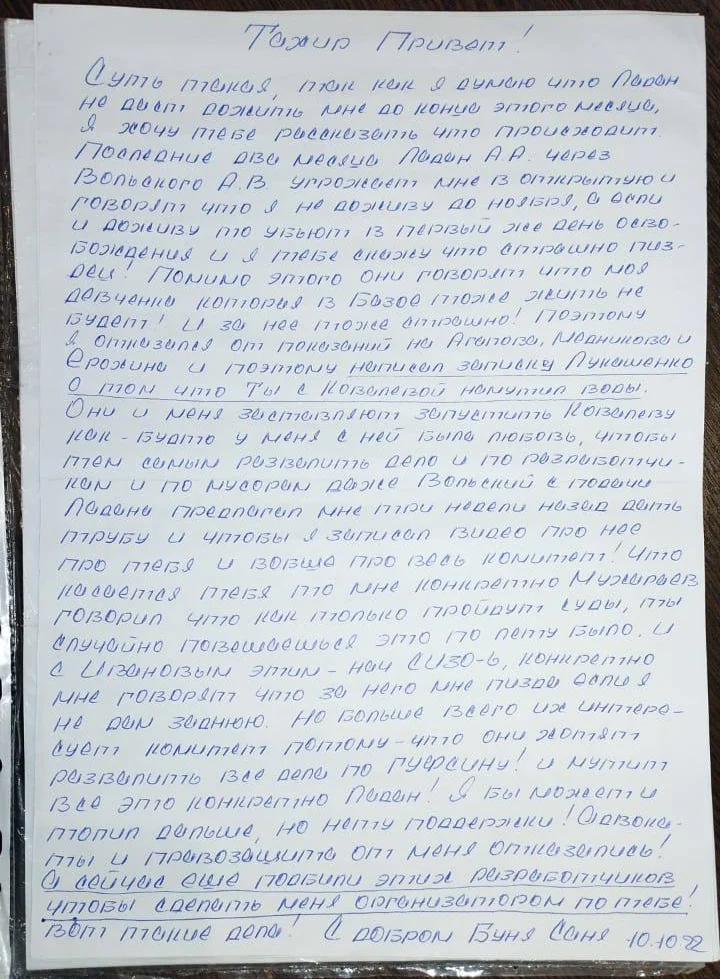 Тахир Привет!
Суть такая, так как я думаю что Ладан
не даст дожить мне до конца этого месяца,
я хочу тебе рассказать что происходит.
Последние два месяца Ладан А.А. через
Вольского А.В. угрожает мне в открытую и
говорят что я не доживу до ноября, а если
и доживу то убьют в первый же день осво-
бождения и я тебе скажу что страшно пиз-
дец! Помимо этого они говорят что моя
девченка которая в Базое тоже жить не
будет! И за нее тоже страшно! Поэтому
я отказался от показаний на Агапова, Медникова и
Ерохина и поэтому написал записку Лукашенко
о том что ты с Ковалевой намутил воды.
Они и меня заставляют запустить Ковалеву
как-будто у меня с ней была любовь, чтобы
тем самым развалить дело и по разработчи-
кам и по мусорам даже Вольский с подачи
Ладана предлагал мне три недели назад дать
трубу и чтобы я записал видео про нее
про тебя и вобще про весь комитет! Что
касается тебя то мне конкретно Мужараев
говорил что как только пройдут суды, ты
случайно повешаешься это по лету было. И
с Ивановым этим - нач СИЗО-6, конкретно
мне говорят что за него мне пизда если я
не дам заднюю. Но больше всего их интере-
сует комитет потому-что они хотят
развалить все дела по ГУФСИНу! и мутит
все это конкретно Ладан! Я бы может и
топил дальше, но нету поддержки! Адвока-
ты и правозащита от меня отказались!
А сейчас еще подбили этих разработчиков
чтобы сделать меня организатором по тебе!
Вот такие дела! С добром Буня Саня 10.10.22